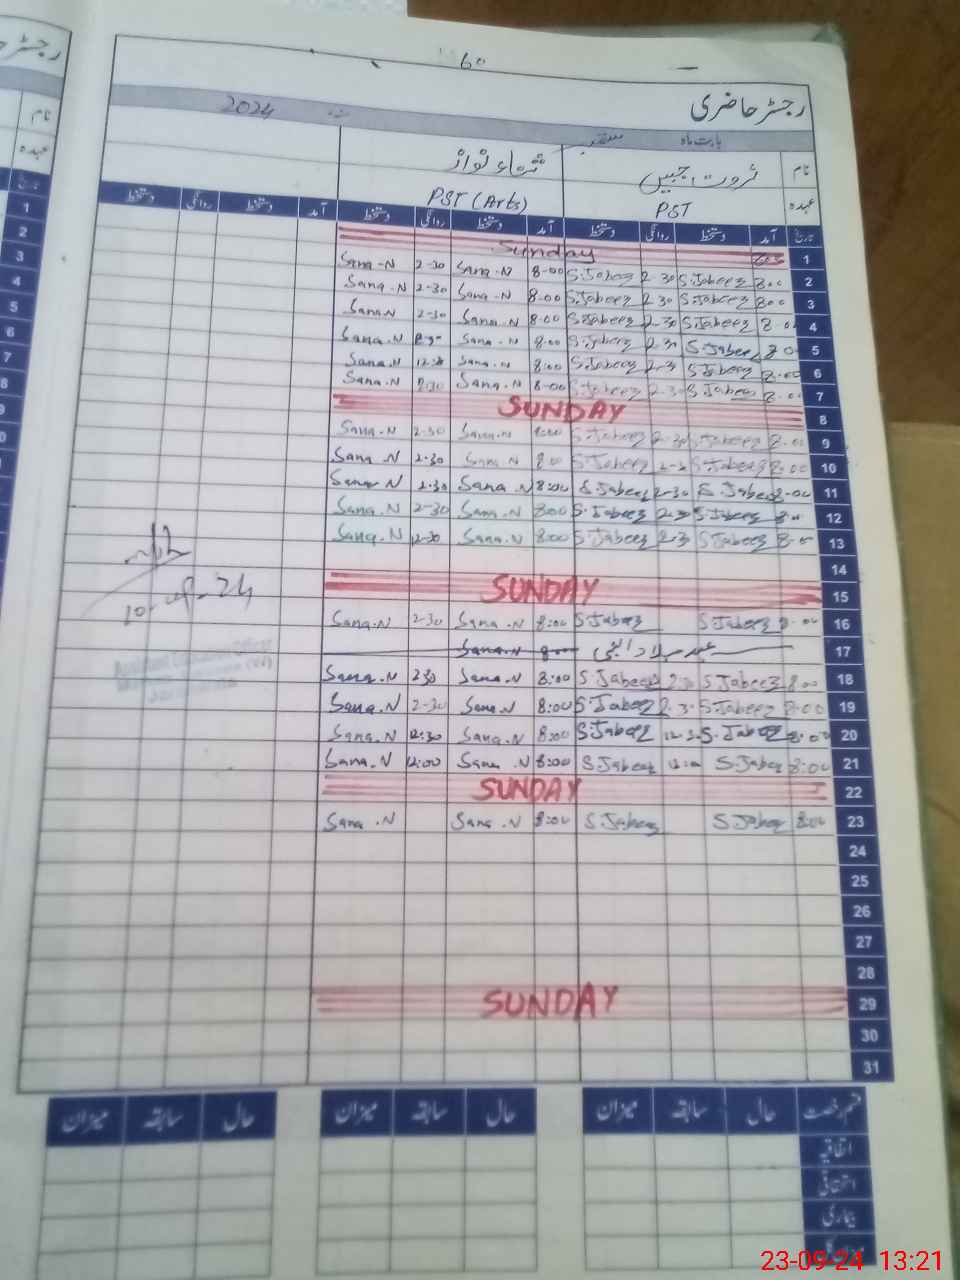 60
رجسٹر حاضری
بابت ماہ ستمبر 2024
نام ثروت جبیں ثناء نواز
عہدہ PST PST (Arts)
تاریخ آمد دستخط روانگی دستخط آمد دستخط روانگی دستخط آمد دستخط روانگی دستخط
1 Sunday
2 8:00 S.Jabeez 2-30 S.Jabeez 8-00 Sana-N 2-30 Sana-N
3 8:00 S.Jabeez 2-30 S.Jabeez 8-00 Sana-N 2-30 Sana-N
4 8-00 S.Jabeez 2-30 S.Jabeez 8-00 Sana.N 2-30 Sana.N
5 8-00 S.Jabeez 2-30 S.Jabeez 8-00 Sana.N Sana.N
6 8-00 S.Jabeez 2-3 S.Jabeez 8:00 Sana.N 12:30 Sana.N
7 8-00 S.Jabeez 2-30 S.Jabeez 8-00 Sana.N Sana.N
8 SUNDAY
9 8-00 S.Jabeez 2-30 S.Jabeez 8:00 Sana.N 2-30 Sana.N
10 8:00 S.Jabeez S.Jabeez 8:00 Sana.N 2-30 Sana.N
11 8-00 S.Jabeez 2-30 S.Jabeez 8:00 Sana.N 2.30 Sana.N
12 8-00 S.Jabeez 2-30 S.Jabeez 8:00 Sana.N 2-30 Sana.N
13 8-00 S.Jabeez 2-3 S.Jabeez 8:00 Sana.N 2-30 Sana.N
14
15 SUNDAY
16 8-00 S.Jabeez S.Jabeez 8:00 Sana.N 2-30 Sana.N
17 عید میلاد النبی 8:00 Sana.N
18 8:00 S.Jabeez 2:30 S.Jabeez 8:00 Sana.N 2:30 Sana.N
19 8:00 S.Jabeez 2-3 S.Jabeez 8:00 Sana.N 2-30 Sana.N
20 8:00 S.Jabeez S.Jabeez 8:00 Sana.N 12:30 Sana.N
21 8:00 S.Jabeez 12:00 S.Jabeez 8:00 Sana.N 12:00 Sana.N
22 SUNDAY
23 8:00 S.Jabeez S.Jabeez 8:00 Sana.N Sana.N
24
25
26
27
28
29 SUNDAY
30
31
Assistant Education Officer
قسم رخصت حال سابقہ میزان حال سابقہ میزان حال سابقہ میزان
اتفاقیہ
استحقاقی
بیماری
رجسٹر
نام
عہدہ
تاریخ
1
2
3
4
5
6
7
8
9
23-09-24 13:21